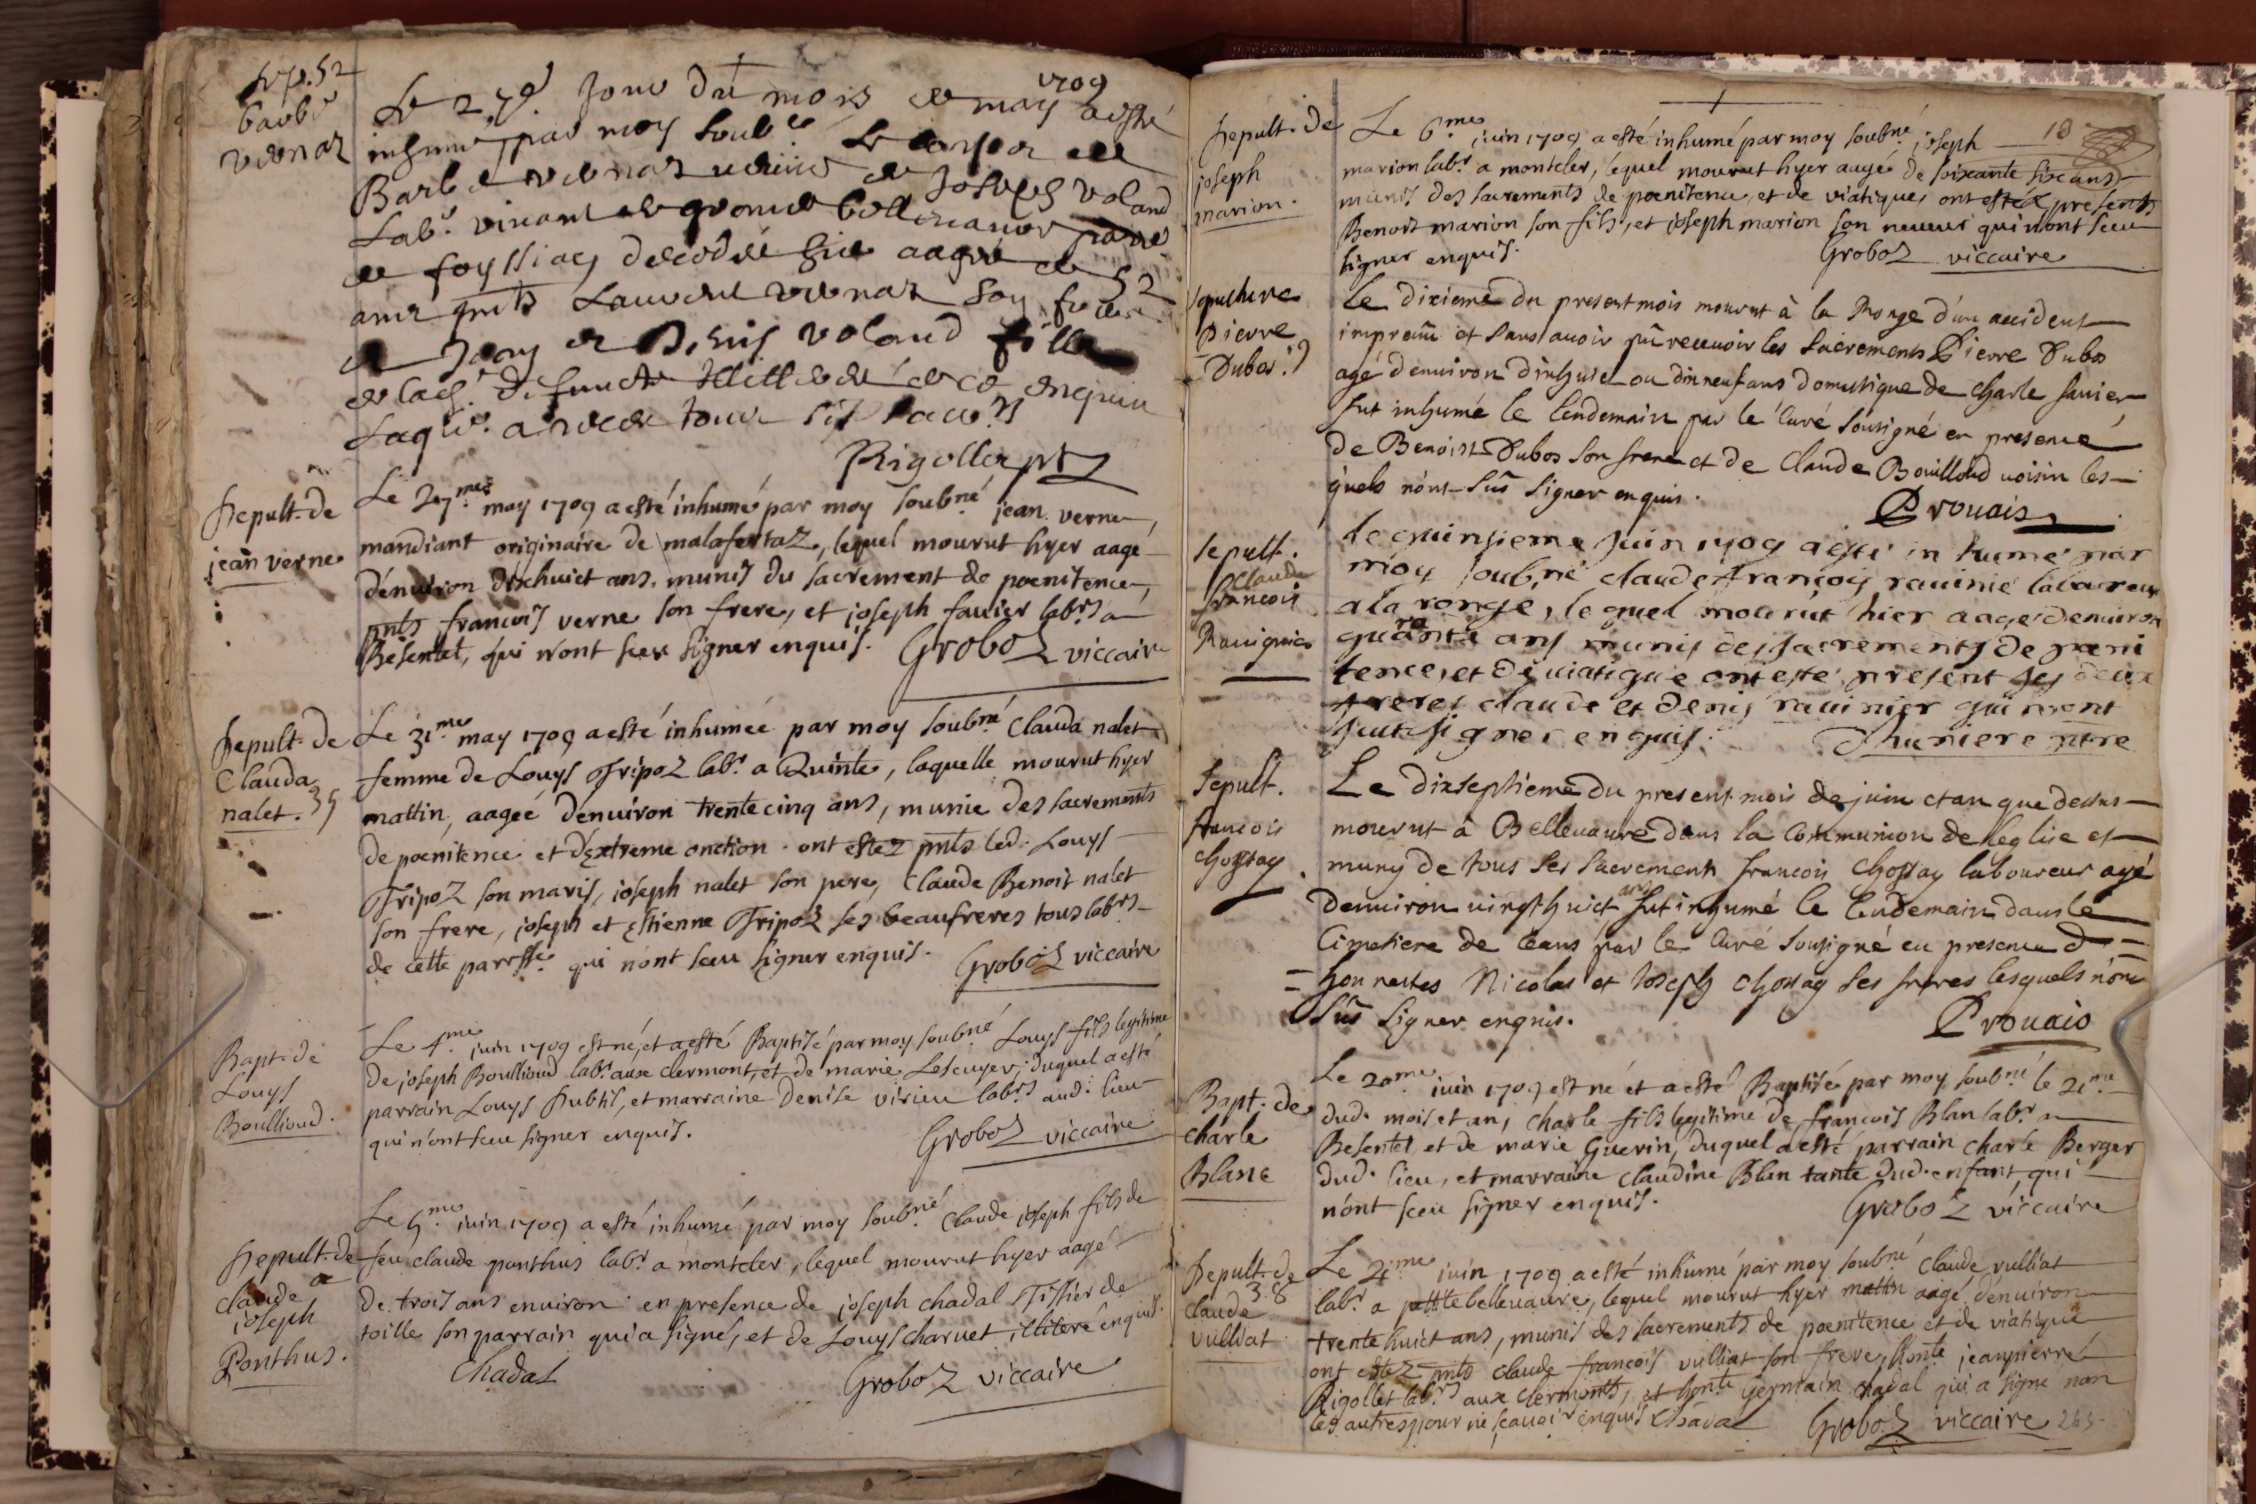 Sep. 52
barbe
vernaz
1709
Le 27e Jour du mois de may a esté
inhumé par moy soub.é le corps de
Barbe vernaz veuve de Joseph voland
Lab.r vivant de
de foyssiac decedée hier aagée de 52
ans pnts Laurent vernaz son frere
et Jean et Denis voland fille
de lad. defuncte Illitterée de ce enquis
Rigollet ptre
Sepult. de
jean verne
Le 27.me may 1709 a esté inhumé par moy soub.né jean verne
mandiant originaire de malafertaz, lequel mourut hyer aagé
d'environ dixhuict ans, munis du sacrement de poenitence,
pnts francois verne son frere, et joseph favier lab.rs a
Besentet, qui n'ont sceu signer enquis. Groboz viccaire
Sepult. de
Clauda
nalet. 35
Le 31.me may 1709 a esté inhumée par moy soub.né Clauda nalet
femme de Louys Tripoz lab.r a Quinte, laquelle mourut hyer
mattin, aageé d'enuiron trente cinq ans, munie des sacrements
de poenitence et d'extreme onction. ont estez pnts led. Louys
Tripoz son maris, joseph nalet son pere, Claude Benoit nalet
son frere, joseph et Estienne Tripoz ses beaufreres tous lab.rs
de cette parr.sse qui n'ont sceu signer enquis. Groboz viccaire
Bapt. de
Louys
Boullioud.
Le 4.me juin 1709 est né, et a esté Baptisé par moy soub.né Louys fils legitime
de joseph Boullioud lab.r aux clermont, et de marie Lescuyer, duquel a esté
parrain Louys Subtil, et marraine Denise virieu lab.rs aud. lieu
qui n'ont sceu signer enquis. Groboz viccaire
Sepult. de
claude
joseph
Ponthus.
Le 5.me juin 1709 a esté inhumé par moy soub.né Claude joseph fils de
feu claude ponthus lab.r a montcler, lequel mourut hyer aagé
de trois ans environ. en presence de joseph chadal Tissier de
toille son parrain qui a signé, et de Louys charvet illiteré enquis.
Chadal Groboz viccaire
Sepult. de
joseph
marion.
19
Le 6.me juin 1709 a esté inhumé par moy soub.né joseph
marion lab.r a montcler, lequel mourut hyer aagé de soixante six ans
munis des sacrements de poenitence, et de viatique, ont estéz presents
Benoit marion son fils, et joseph marion son neveur qui n'ont sceu
signer enquis. Groboz viccaire
Sepulture
Pierre
Dubos. 19
Le dixieme du present mois mourut à la Ronge d'un accident
impreuu et sans auoir pû receuoir les Sacrements Pierre Dubos
agé d'enuiron dixhuict ou dixneuf ans domestique de Charle fauier
fut inhumé le lendemain par le curé sousigné en presence
de Benoist Dubos son frere et de Claude Bouilloud uoisin les-
quels n'ont sûs signer enquis. Drouais
sepult.
claude
francois
Rauignier
le quinsieme juin 1709 a esté inhumé par
moy soub.né claude francois rauinié laboureur
a la ronge, lequel mourut hier aagé denuiron
quarante ans munis des sacrements de peni
tence, et de uiatique ont esté present ses deux
freres claude et denis rauinier qui n'ont
sceut signer enquis.
Sepult.
francois
chossag
Le dixseptieme du present mois de juin et an que dessus
mourut à Belleuaure dans la communion de l'eglise et
muny de tous ses sacrements francois chossag laboureur agé
d'enuiron uingthuict ans fut inhumé le lendemain dans le
Cimetiere de ceans par le curé sousigné en presence d=
=honnestes Nicolas et Joseph chossag ses freres lesquels n'ont
sûs signer enquis. Drouais
Bapt. de
charle
Blanc
Le 20.me juin 1709 est né et a esté Baptisé par moy soub.né le 21.me
dud. mois et an, charle fils legitime de francois Blan lab.r a
Besentet et de marie Guerin, duquel a esté parrain charle Berger
dud. lieu, et marraine claudine Blan tante dud. enfant, qui
n'ont sceu signer enquis. Groboz viccaire
Sepult. de
claude 38
vulliat
Le 21.me juin 1709 a esté inhumé par moy soub.né claude vulliat
lab.r a petitte bellevaure, lequel mourut hyer mattin aagé d'enuiron
trente huict ans, munis des sacrements de poenitence et de viatique
ont estez pnts claude francois vulliat son frere, hon.te jeanpierre
Rigollet lab.rs aux clermonts, et hon.te germain chadal qui a signé non
les autres pour ne sçauoir enquis Chadal Groboz viccaire 265